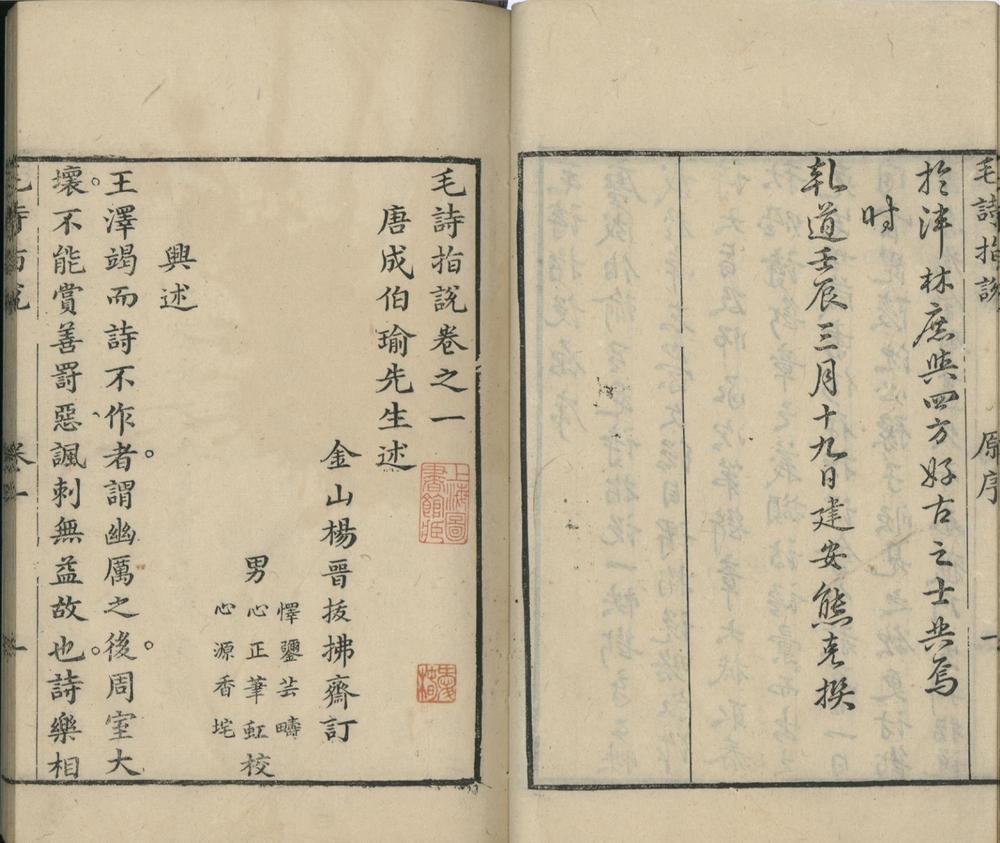 毛詩指說
原序
一
於泮林庶與四方好古之士共焉
时
乾道壬辰三月十九日建安熊克撰
毛詩指說卷之一
唐成伯瑜先生述
金山楊晉㧞拂齋訂
懌疆芸疇
男心正筆虹校
心源香垞
興述
王澤竭而詩不作者謂幽厲之後周室大
壞不能賞善罰惡諷刺無益故也詩樂相
毛詩指說
卷一
一
上海圖書館藏